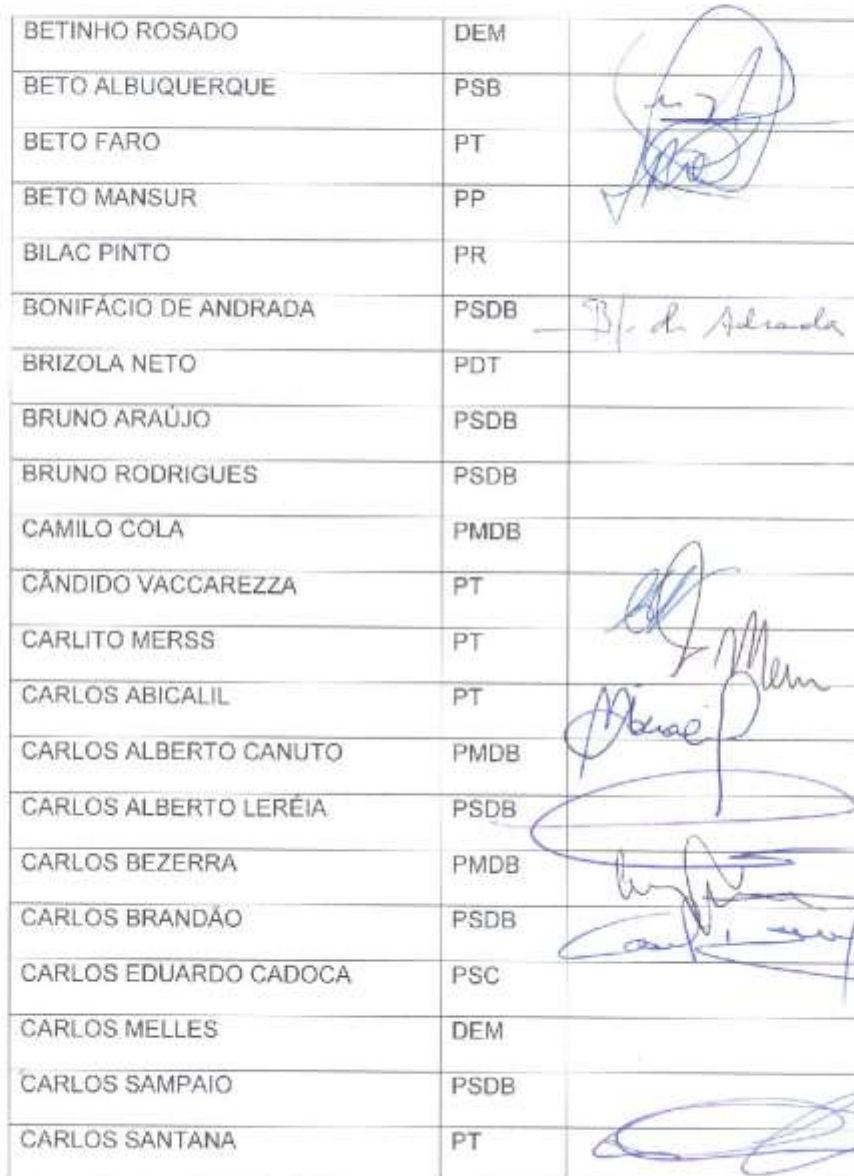 BETINHO ROSADO DEM
BETO ALBUQUERQUE PSB
BETO FARO PT
BETO MANSUR PP
BILAC PINTO PR
BONIFÁCIO DE ANDRADA PSDB
BRIZOLA NETO PDT
BRUNO ARAÚJO PSDB
BRUNO RODRIGUES PSDB
CAMILO COLA PMDB
CÂNDIDO VACCAREZZA PT
CARLITO MERSS PT
CARLOS ABICALIL PT
CARLOS ALBERTO CANUTO PMDB
CARLOS ALBERTO LERÉIA PSDB
CARLOS BEZERRA PMDB
CARLOS BRANDÃO PSDB
CARLOS EDUARDO CADOCA PSC
CARLOS MELLES DEM
CARLOS SAMPAIO PSDB
CARLOS SANTANA PT